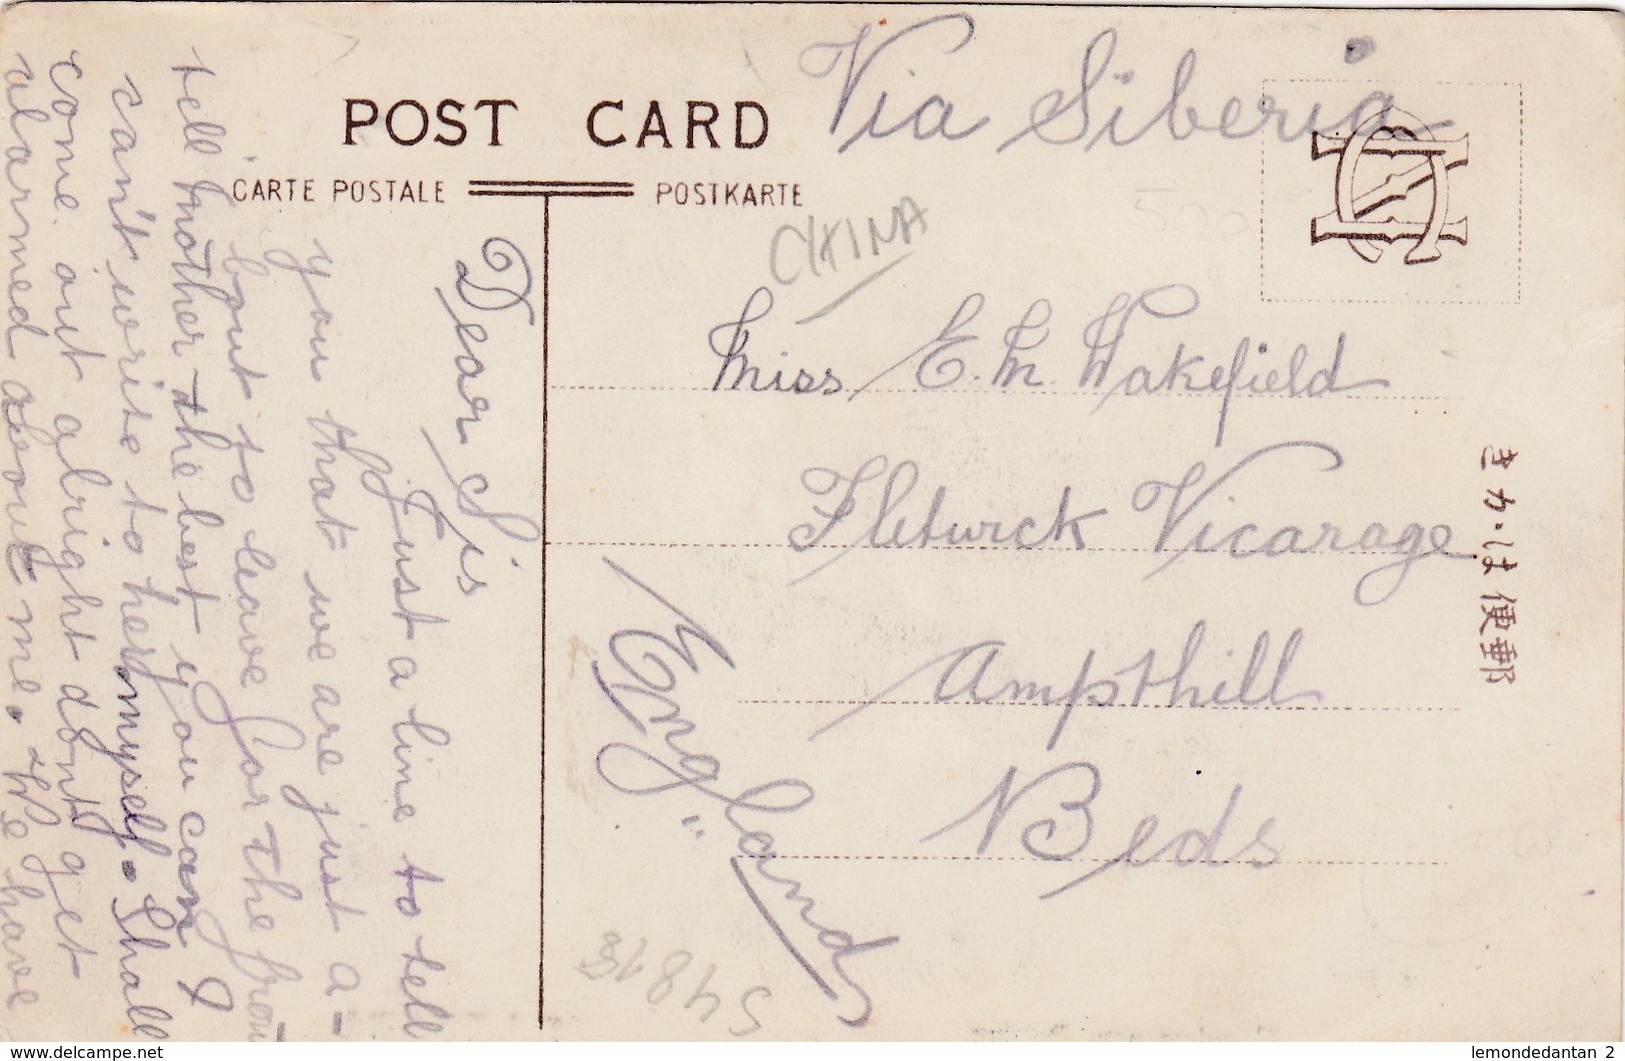 POST CARD
CARTE POSTALE
POSTKARTE
Via Siberia
CHINA
Miss E. M. Wakefield
Fletwick Vicarage
Ampthill
Beds
England
きかは便郵
Dear Sis
Just a line to tell
you that we are just a-
bout to leave for the
tell mother the best you can I
can't write to her myself. Shall
come out alright dont get
alarmed about me. We have
www.delcampe.net
lemondedantan 2